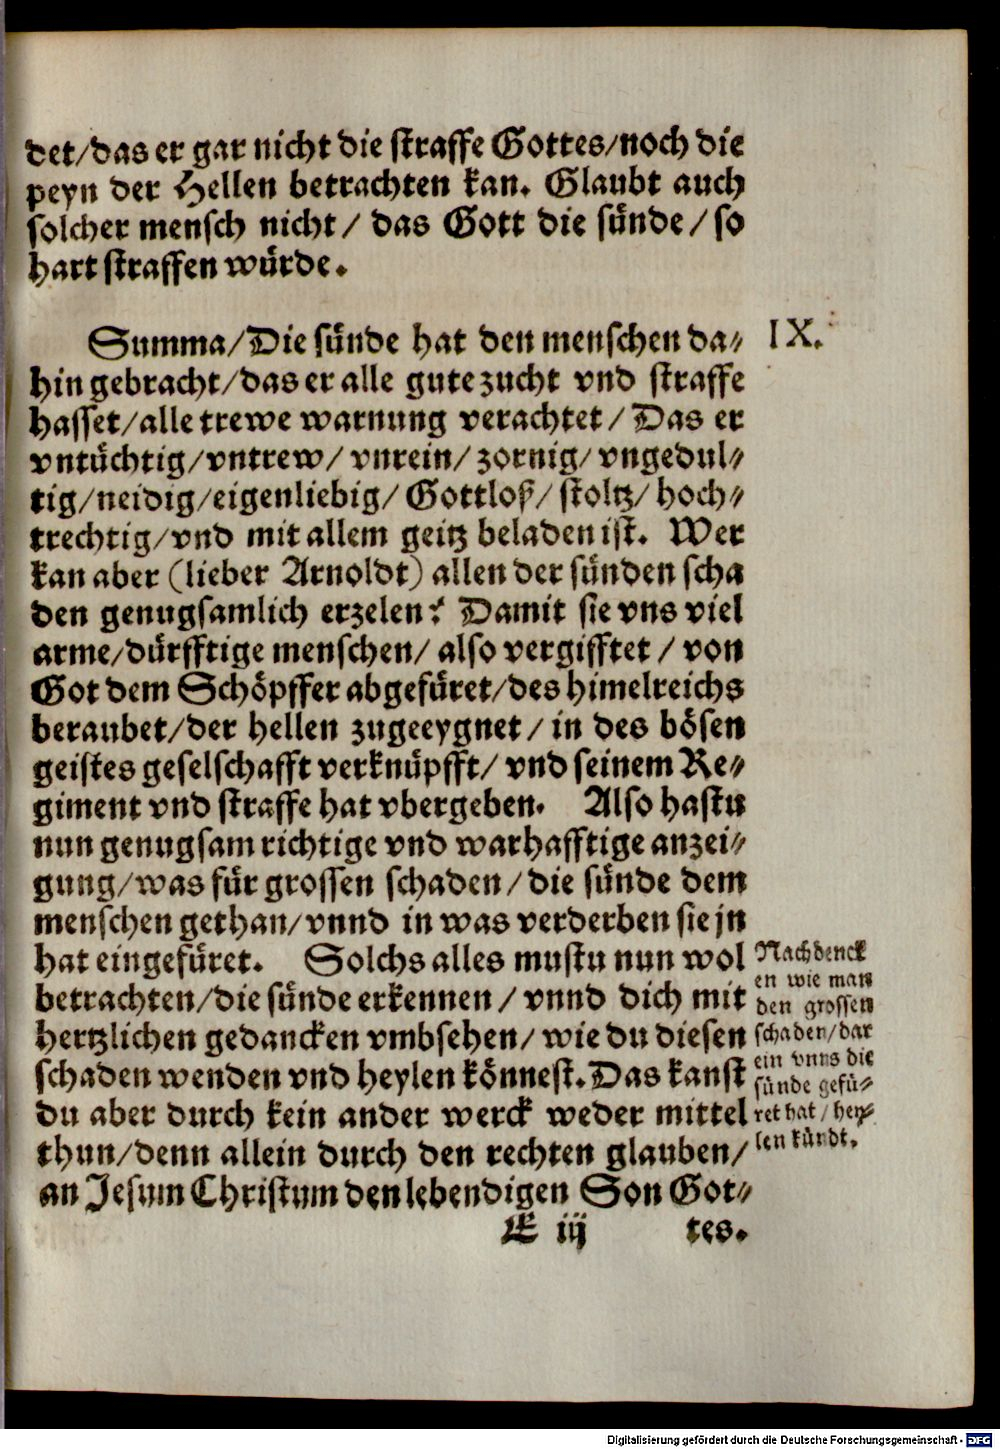 det/das er gar nicht die straffe Gottes/noch die
peyn der Hellen betrachten kan. Glaubt auch
solcher mensch nicht/ das Gott die sünde/ so
hart straffen würde.
IX.
Summa/Die sünde hat den menschen da⸗
hin gebracht/das er alle gute zucht vnd straffe
hasset/alle trewe warnung verachtet/ Das er
vntüchtig/vntrew/ vnrein/ zornig/ vngedul⸗
tig/neidig/eigenliebig/ Gottloß/ stoltz/ hoch⸗
trechtig/vnd mit allem geitz beladen ist. Wer
kan aber (lieber Arnoldt) allen der sünden scha
den genugsamlich erzelen? Damit sie vns viel
arme/dürfftige menschen/ also vergifftet/ von
Got dem Schöpffer abgefüret/des himelreichs
beraubet/der hellen zugeeygnet/ in des bösen
geistes geselschafft verknüpfft/ vnd seinem Re⸗
giment vnd straffe hat vbergeben. Also hastu
nun genugsam richtige vnd warhafftige anzei⸗
gung/was für grossen schaden/die sünde dem
menschen gethan/vnnd in was verderben sie jn
hat eingefüret. Solchs alles mustu nun wol
betrachten/die sünde erkennen/ vnnd dich mit
hertzlichen gedancken vmbsehen/ wie du diesen
schaden wenden vnd heylen könnest. Das kanst
du aber durch kein ander werck weder mittel
thun/denn allein durch den rechten glauben/
an Jesum Christum den lebendigen Son Got⸗
Nachdenck
en wie man
den grossen
schaden/dar
ein vnns die
sünde gefü⸗
ret hat/ hey⸗
len kündt.
E iij tes.
Digitalisierung gefördert durch die Deutsche Forschungsgemeinschaft - DFG